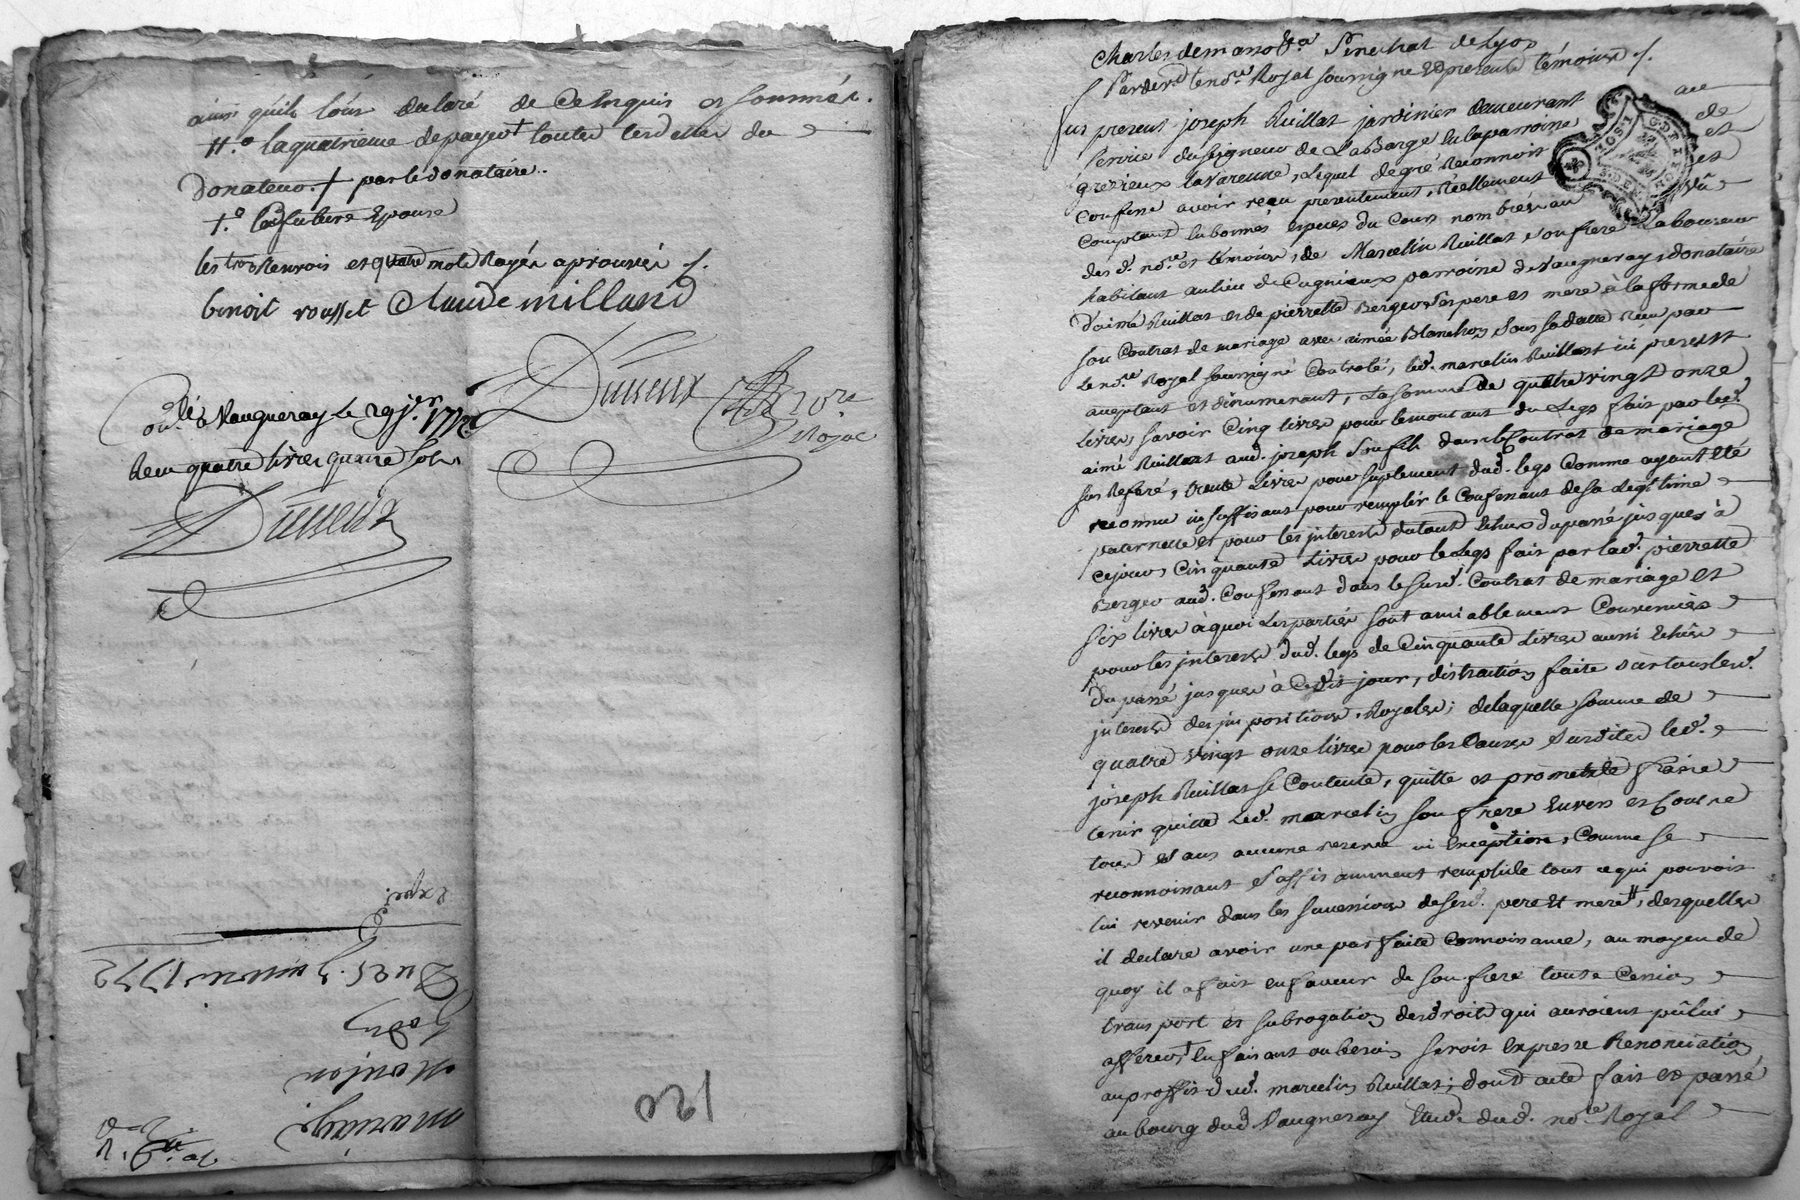 ainsi qu'ils l'ont declaré de ce enquis et sommés.
#.o laquatrieme depayer† toutes les dettes du
Donateur./ par le donataire.
†.o la future Epouse
les trois Renvois et quatre mots Rayés aprouvés /.
benoit rousset Claude milland
Dusseux no.re
Royal
Con.lé à Vaugneray Le 29 j.er 1772
Receu quatre livres quinze sols
Dusseux
expé
Du 25. Janvier 1772
mariage
120
Charles demasso Senechal de Lyon
Pardevt le no.re Royal soussigné et presents témoins /.
fut present joseph Ruillat jardinier demeurant au
service du seigneur de Labarge en la parroisse de
grezieux Lavarenne, Lequel de gré Reconnoit et
Confesse avoir reçu presentement, Réellement et
Comptant en bonnes especes du Cours nombrées au vû
des d. no.re et témoins, de Marcellin Ruillat son frere Laboureur
habitant au lieu de Cugnieux parroisse de Vaugneray, donataire
d'aimé Ruillat et de pierrette Berger Ses pere et mere à la forme de
son Contrat de mariage avec aimée Blanchon Sous sa datte Reçu par
Le no.re Royal soussigné Controlé, led. marcelin Ruillat ici present
aceptant et dénumerant, La somme de quatre vingt onze
Livres, savoir Cinq livres pour le montant du Legs fait par led.
aimé Ruillat aud. joseph Son fils dans le Contrat de mariage
sus Referé, trente Livres pour suplement dud. legs Comme ayant Eté
reconnu insuffisant pour remplir le Confessant de sa Legitime
paternelle et pour les interets du tout Echus du passé jusques à
cejour, Cinquante Livres pour le Legs fait par lad. pierrette
Berger aud. Confessant dans le susd. Contrat de mariage et
Six livres à quoi Les parties sont amiablement Convenües
pour les interets dud. legs de Cinquante Livres aussi Echus
du passé jusques à Cedit jour, distraction faite sur tous lesd.
interets des impositions Royales; de laquelle somme de
quatre vingt onze livres pour les Causes Susdites led.
joseph Ruillat se Contente, quitte et promet de faire
tenir quitte Led. marcelin son frere Envers et Contre
tous Sans aucune reserve ni Exception, Comme se
reconnoissant Suffisamment rempli de tout ce qui pouvoit
lui revenir dans les successions de sesd. pere et mere#, desquelles
il declare avoir une parfaite Connoissance, au moyen de
quoy il a fait en faveur de son frere toute Cession
transport et subrogation des droits qui auroient pû lui
afferer† En faisant ou besoin seroit Expresse Renonciation
au proffit dud. marcelin Ruillat; dont acte fait et passé
au bourg dud. Vaugneray Etude dud. no.re Royal